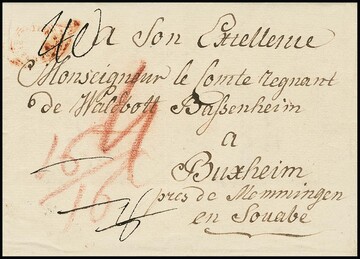 a Son Excellence
Monseigneur le Comte regnant
de Waldbott Bassenheim
a
Buxheim
pres de Memmingen
en Souabe
16
16